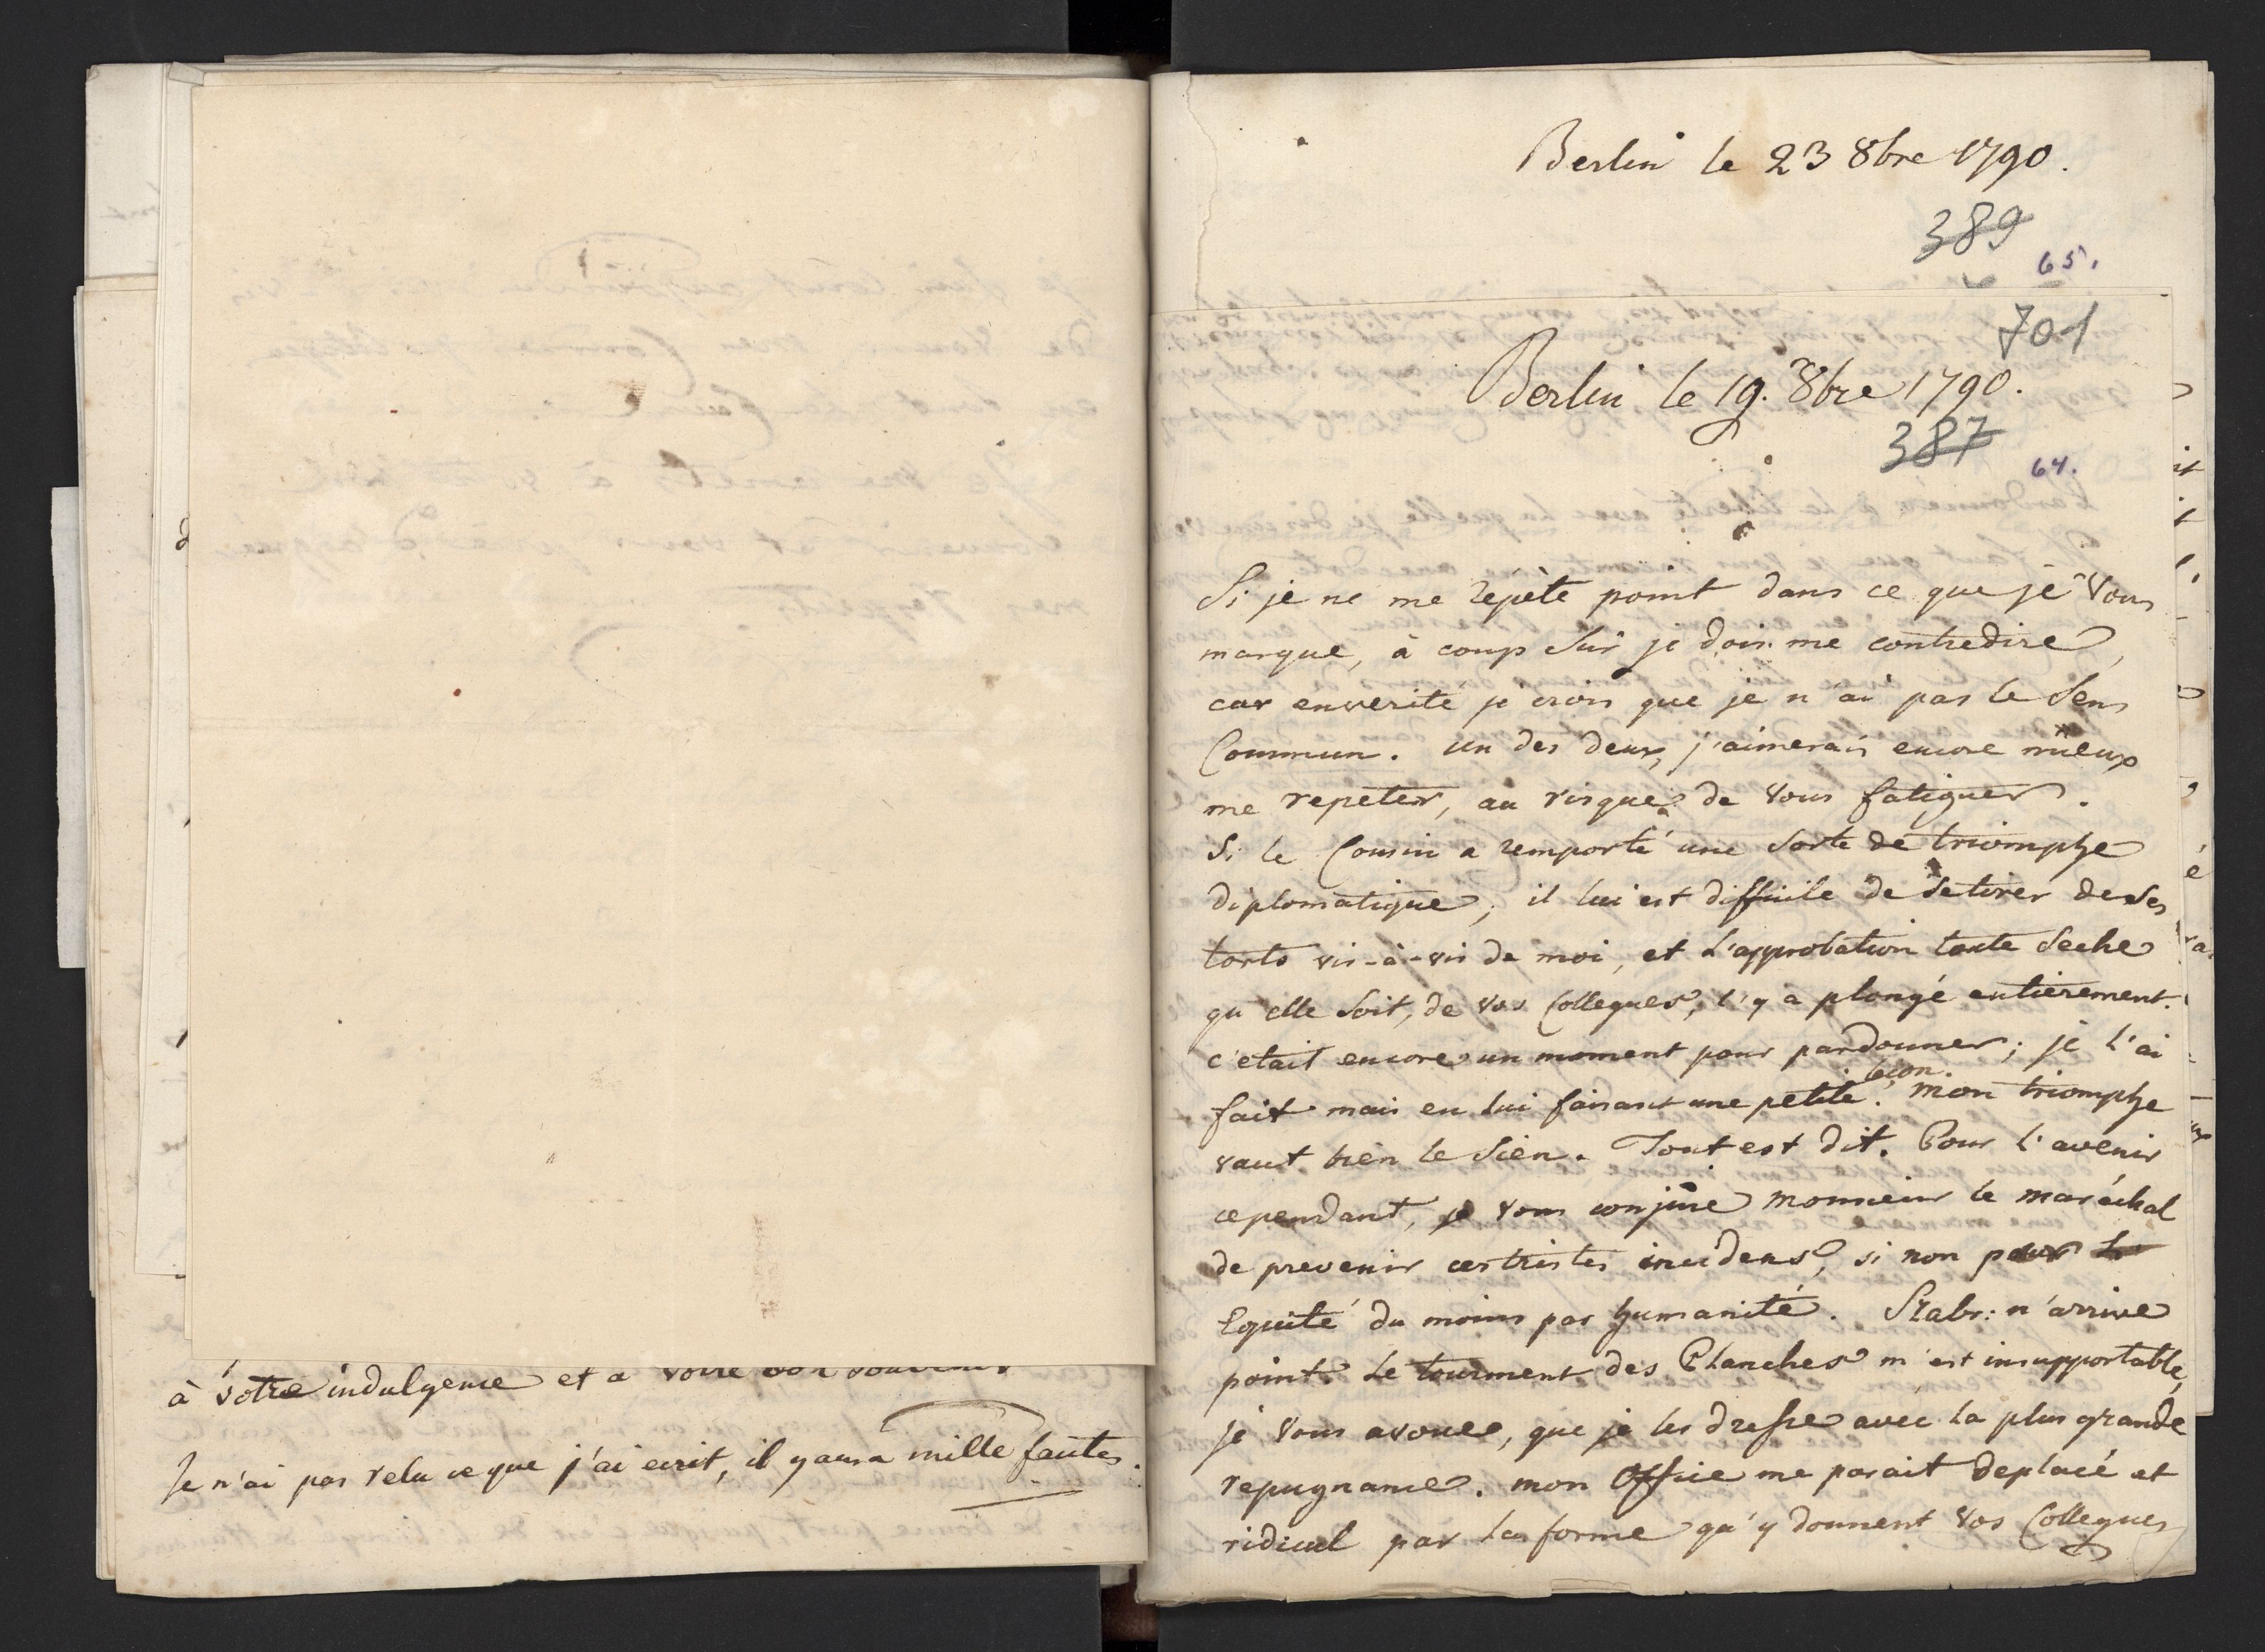 à votre indulgence et a votre bon souvenir
Je n'ai pas relu ce que j'ai ecrit, il y aura mille fautes.
Berlin le 23 8bre 1790.
389
65.
701
Berlin le 19. 8bre 1790.
387
64.
Si je ne me répète point dans ce que je vous
marque, à coup sur je dois me contredire,
car enverité je crois que je n'ai pas le sens
Commun. un des deux, j'aimerais encore mieux
me repeter, au risque de vous fatiguer.
Si le Cousin a remporté une sorte de triomphe
diplomatique, il lui est difficile de se tirer de ses
torts vis-à-vis de moi, et l'approbation toute seche
qu'elle soit, de vos Collegues, l'y a plongé entièrement.
c'etait encore un moment pour pardonner; je l'ai
fait mais en lui faisant une petite leçon. mon triomphe
vaut bien le sien. Tout est dit. Pour l'avenir
cependant, je vous conjure monsieur le maréchal
de prevenir ces tristes incidens, si non par
Equité du moins par humanité. Stabr: n'arrive
point. Le tourment des Planches m'est insupportable,
je vous avoue, que je les dresse avec la plus grande
repugnance. mon Office me parait deplacé et
ridicul par la forme qu'y donnent vos Collegues